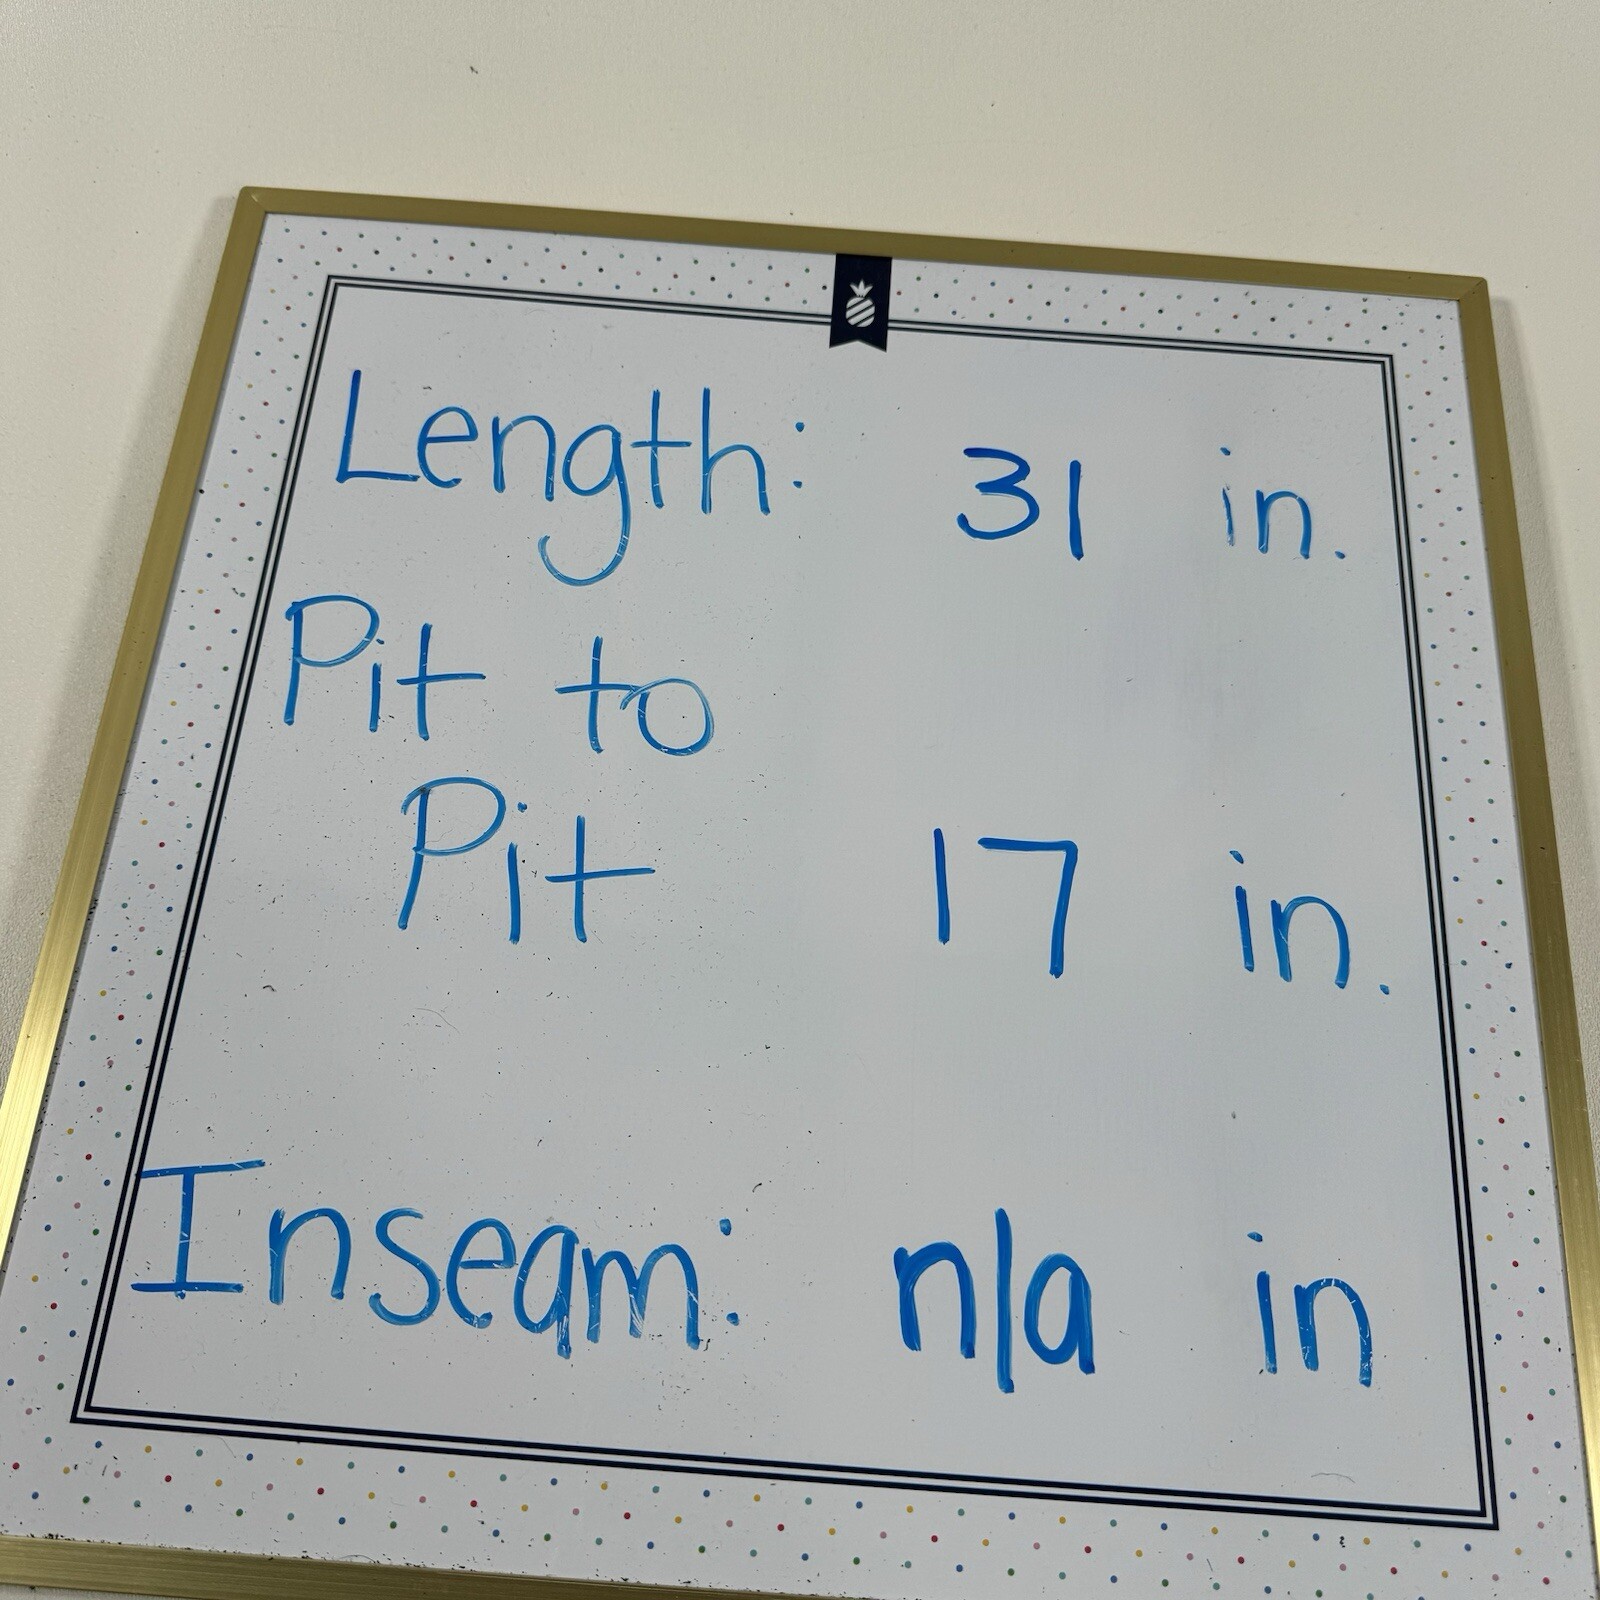 Length: 31 in.
Pit to
Pit 17 in.
Inseam: n/a in